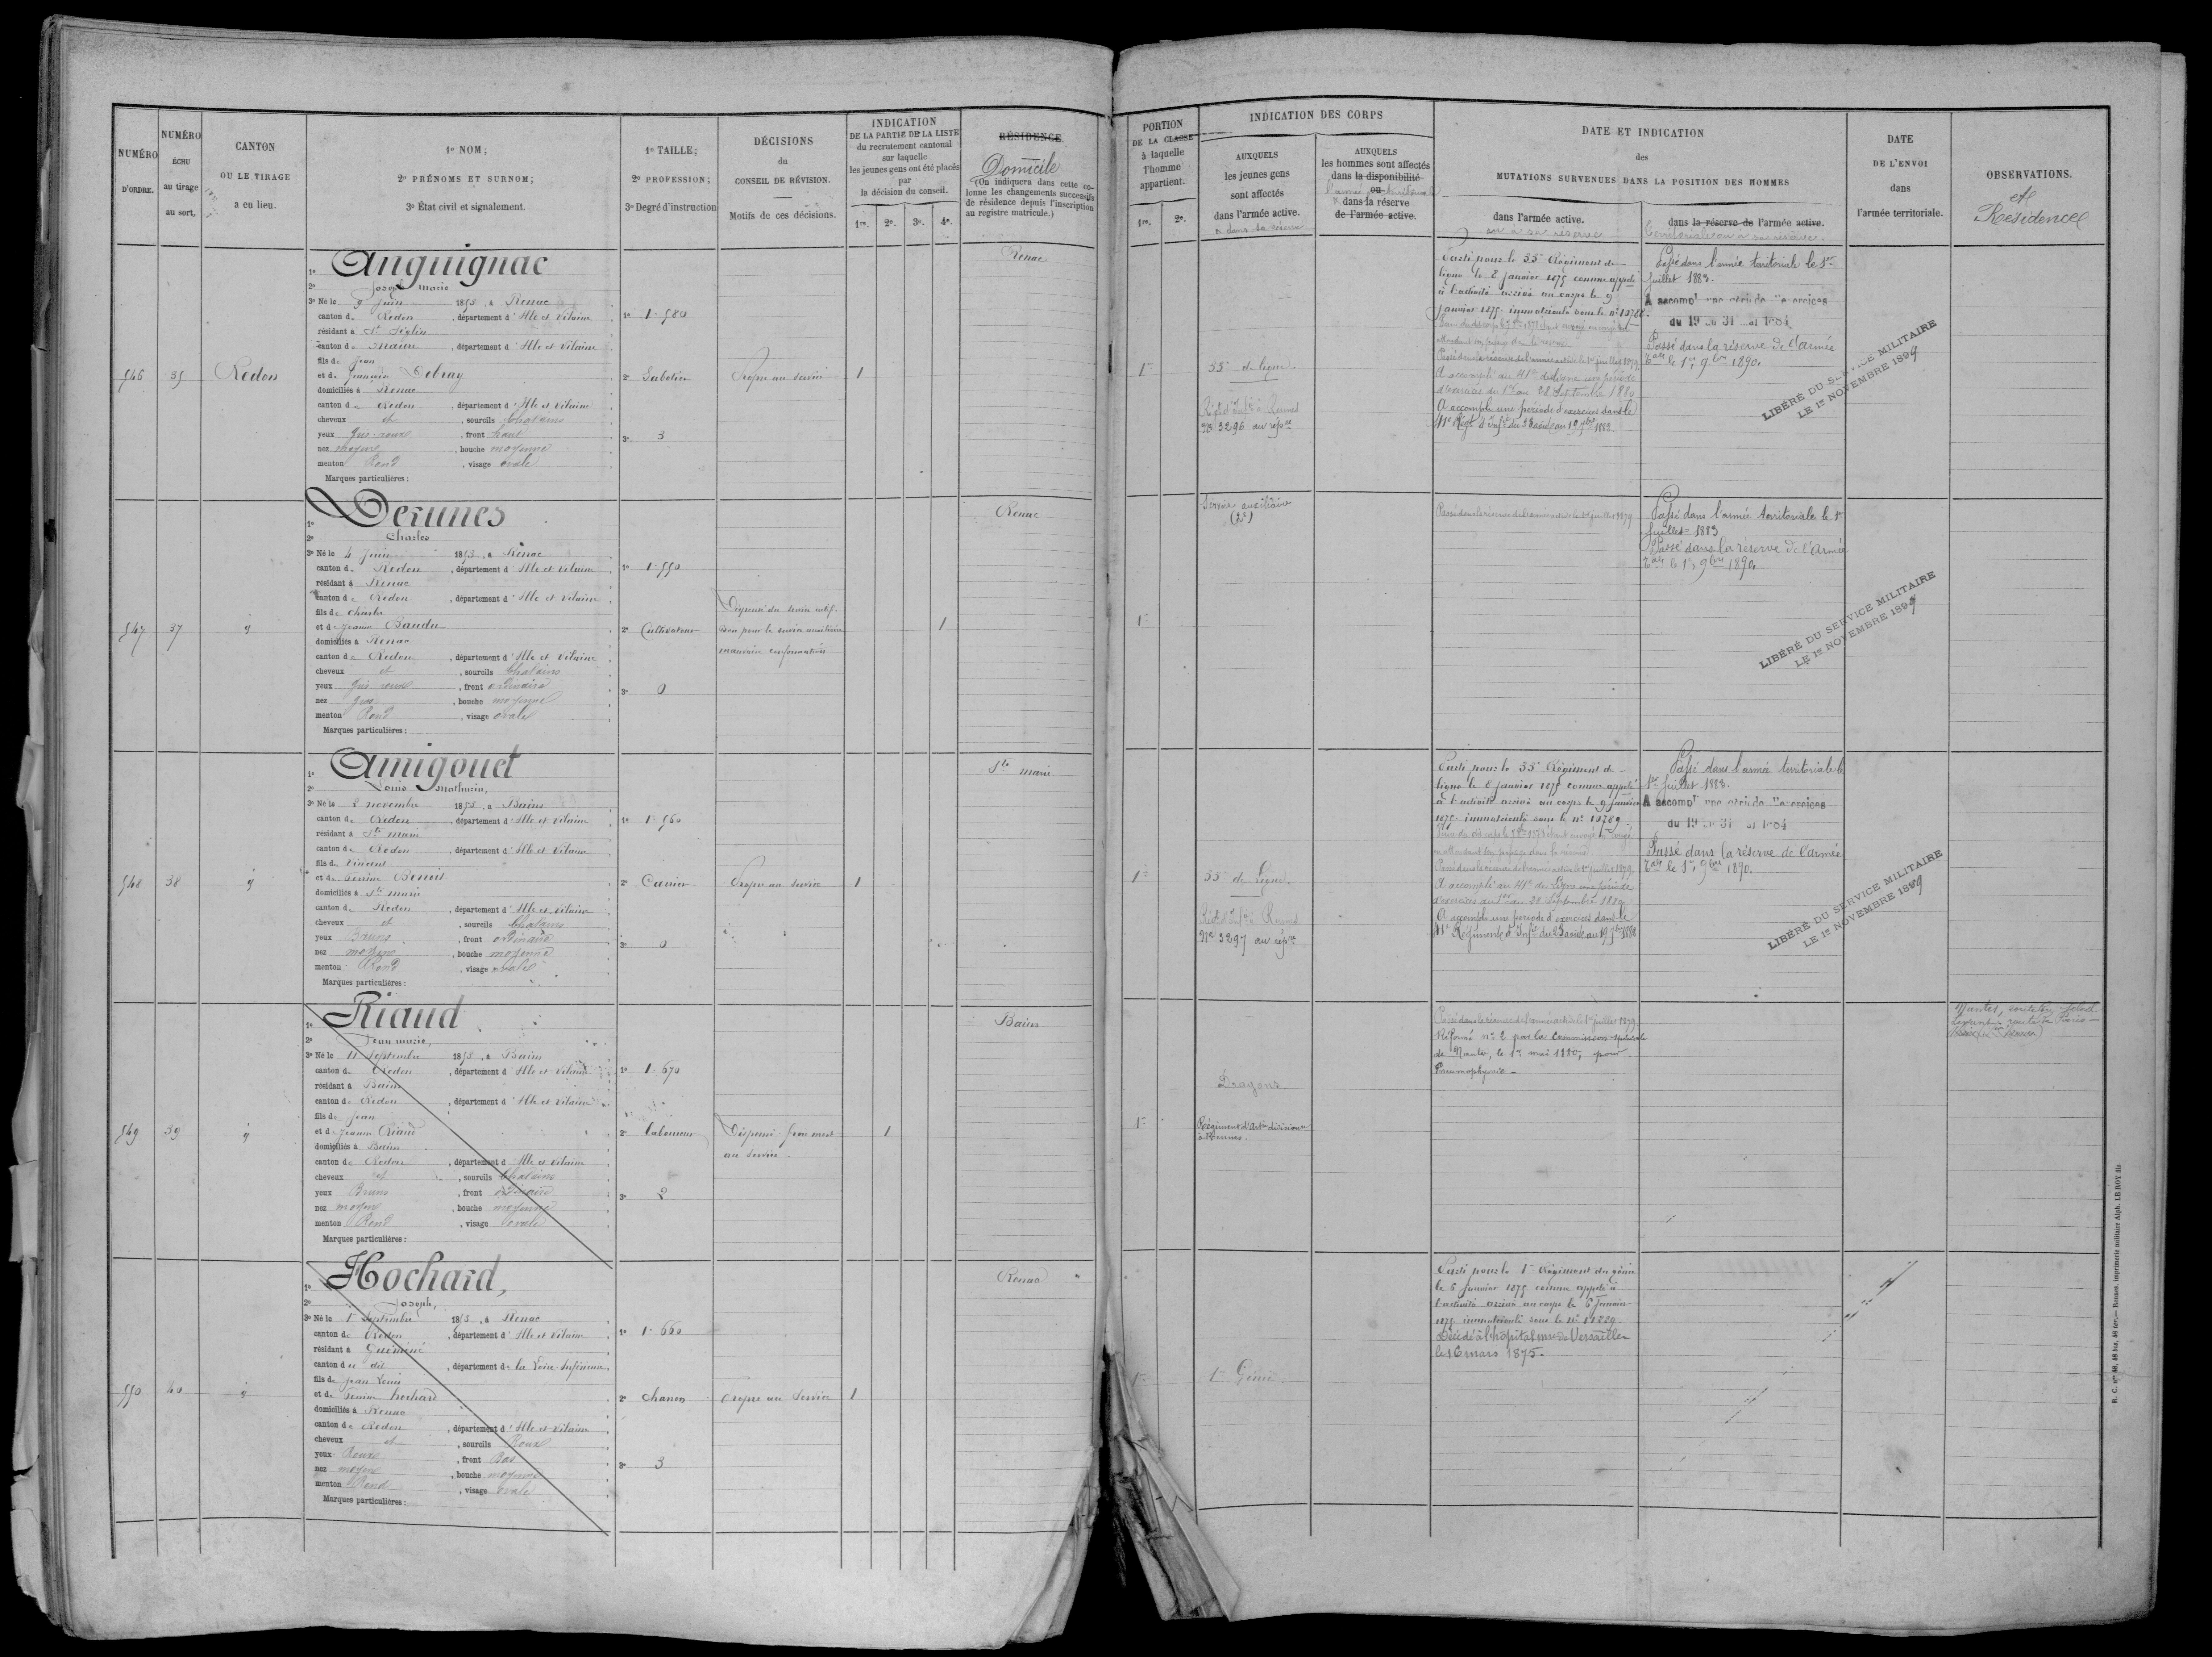 NUMÉRO D'ORDRE.
NUMÉRO ÉCHU au tirage au sort.
CANTON OU LE TIRAGE a eu lieu.
1º NOM;
2º PRÉNOMS ET SURNOM;
3º État civil et signalement.
1º TAILLE;
2º PROFESSION;
3º Degré d'instruction
DÉCISIONS
du
CONSEIL DE RÉVISION.
Motifs de ces décisions.
INDICATION
DE LA PARTIE DE LA LISTE
du recrutement cantonal
sur laquelle
les jeunes gens ont été placés
par
la décision du conseil.
1re. 2e. 3e. 4e.
RÉSIDENCE
Domicile
(On indiquera dans cette co-
lonne les changements successifs
de résidence depuis l'inscription
au registre matricule.)
546
35
Redon
1º Anguignac
2º Joseph Marie
3º Né le 9 Juin 1853, à Renac
canton de Redon, département d'Ille et Vilaine
résidant à St Séglin
canton de Maure, département d'Ille et Vilaine
fils de Jean
et de Françoise Debray
domiciliés à Renac
canton de Redon, département d'Ille et Vilaine
cheveux et, sourcils Chatains
yeux Gris roux, front haut
nez moyen, bouche moyenne
menton Rond, visage ovale
Marques particulières:
1º 1.580
2º Sabotier
3º 3
Propre au service
1
Renac
547
37
1º Derunes
2º Charles
3º Né le 4 Juin 1853, à Renac
canton de Redon, département d'Ille et Vilaine
résidant à Renac
canton de Redon, département d'Ille et Vilaine
fils de Charles
et de Jeanne Baudu
domiciliés à Renac
canton de Redon, département d'Ille et Vilaine
cheveux et, sourcils Chatains
yeux Gris roux, front ordinaire
nez Gros, bouche moyenne
menton Rond, visage ovale
Marques particulières:
1º 1.550
2º Cultivateur
3º 0
Dispensé du service actif
bon pour le service auxiliaire
mauvaise conformation
1
Renac
548
38
1º Amigouet
2º Louis Mathurin,
3º Né le 2 novembre 1853, à Bains
canton de Redon, département d'Ille et Vilaine
résidant à Ste Marie
canton de Redon, département d'Ille et Vilaine
fils de Vincent
et de Perrine Benoit
domiciliés à Ste Marie
canton de Redon, département d'Ille et Vilaine
cheveux et, sourcils Chatains
yeux Bruns, front ordinaire
nez moyen, bouche moyenne
menton Rond, visage ovale
Marques particulières:
1º 1.560
3º 0
Propre au service
1
Ste Marie
549
39
1º Riaud
2º Jean Marie,
3º Né le 11 Septembre 1853, à Bains
canton de Redon, département d'Ille et Vilaine
résidant à Bains
canton de Redon, département d'Ille et Vilaine
fils de Jean
et de Jeanne Riaud
domiciliés à Bains
canton de Redon, département d'Ille et Vilaine
cheveux et, sourcils Chatains
yeux Bruns, front ordinaire
nez moyen, bouche moyenne
menton Rond, visage ovale
Marques particulières:
1º 1.670
2º laboureur
3º 2
Dispensé frère mort
au service
1
Bains
550
40
1º Hochard,
2º Joseph,
3º Né le 1er Septembre 1853, à Renac
canton de Redon, département d'Ille et Vilaine
résidant à Guémené
canton du dit, département de la Loire-Inférieure,
fils de Jean Louis
et de Jeanne hochard
domiciliés à Renac
canton de Redon, département d'Ille et Vilaine
cheveux et, sourcils Roux
yeux Roux, front Bas
nez moyen, bouche moyenne
menton Rond, visage ovale
Marques particulières:
1º 1.660
3º 3
Propre au Service
1
Renac
PORTION
DE LA CLASSE
à laquelle
l'homme
appartient.
1re. 2e.
INDICATION DES CORPS
AUXQUELS
les jeunes gens
sont affectés
dans l'armée active.
ou dans sa réserve
AUXQUELS
les hommes sont affectés
dans la disponibilité
ou
l'armée territoriale
dans la réserve
de l'armée active.
DATE ET INDICATION
des
MUTATIONS SURVENUES DANS LA POSITION DES HOMMES
dans l'armée active.
ou à sa réserve
dans la réserve de l'armée active.
territoriale ou à sa réserve.
DATE
DE L'ENVOI
dans
l'armée territoriale.
OBSERVATIONS.
et
Residence
1re
35e de ligne
Régt d'Infie à Rennes
No 3296 au répre
Parti pour le 35e Régiment de
ligne le 8 Janvier 1875 comme appelé
à l'activité arrivé au corps le 9
janvier 1875 immatriculé sous le no 10788.
Passé dans la réserve de l'armée active le 1er juillet 1879
A accompli au 41e de ligne une période
d'exercices du 1er au 28 Septembre 1880
A accompli une période d'exercices dans le
41e Régt d'Infie du 23 août au 19 7bre 1882
Passé dans l'armée territoriale le 1er
Juillet 1883.
A accompli une période d'exercices
du 19 au 31 mai 1884
Passé dans la réserve de l'armée
Tale le 1er 9bre 1890.
LIBÉRÉ DU SERVICE MILITAIRE
LE 1er NOVEMBRE 1899
1re
Service auxiliaire
Passé dans la réserve de l'armée active le 1er juillet 1879
Passé dans l'armée territoriale le 1er
Juillet 1883
Passé dans la réserve de l'Armée
Tale le 1er 9bre 1890.
LIBÉRÉ DU SERVICE MILITAIRE
LE 1er NOVEMBRE 1899
1re
35e de Ligne.
Régt d'Infie à Rennes
No 3297 au répre
Parti pour le 35e Régiment de
ligne le 8 Janvier 1875 comme appelé
à l'activité arrivé au corps le 9 janvier
1875 immatriculé sous le no 10789
Passé dans la réserve de l'armée active le 1er juillet 1879
A accompli au 41e de Ligne une période
d'exercices du 1er au 28 Septembre 1880
A accompli une période d'exercices dans le
41e Régiment d'Infie du 23 août au 19 7bre 1882
Passé dans l'armée territoriale le
1er Juillet 1883.
A accompli une période d'exercices
du 19 au 31 mai 1884
Passé dans la réserve de l'armée
Tale le 1er 9bre 1890.
LIBÉRÉ DU SERVICE MILITAIRE
LE 1er NOVEMBRE 1899
1re
Dragons
Régiment d'Artie divisionre
à Rennes.
Passé dans la réserve de l'armée active le 1er juillet 1879
Réformé no 2 par la Commission spéciale
de Nantes, le 1er mai 1880, pour
Nantes,
route de Paris
1re
1er Génie
Parti pour le 1er Régiment du génie
le 5 Janvier 1875 comme appelé à
l'activité arrivé au corps le 6 Janvier
1875 immatriculé sous le no 11229.
Décédé à l'hôpital mre de Versailles
le 16 mars 1875.
R. C. nos 48, 48 bis, 48 ter.— Rennes, imprimerie militaire Alph. LE ROY fils